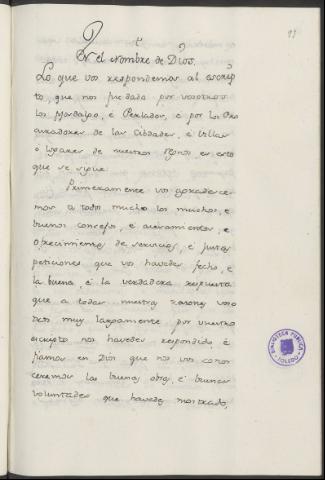 En el Nombre de Dios.
Lo que vos respondemos al escrip
to, que nos fue dado por vosotros
los Fijosdalgo, é Perlados, é por los Pro
curadores de las Cibdades, é Villas
é logares de nuestros Regnos es esto
que se sigue.
Primeramente vos agradesce-
mos a todos mucho los muchos, é
buenos consejos, é avisamentos, é
ofrecimientos de servicios, é justas
peticiones que vos havedes fecho, é
la buena, é la verdadera respuesta
que a todas nuestras razones voso
tros muy largamente por vuestro
escripto nos havedes respondido, é
fiamos en Dios que nos vos conos
ceremos las buenas obras, é buenas
voluntades que havedes mostrado,
BIBLIOTECA PUBLICA
TOLEDO